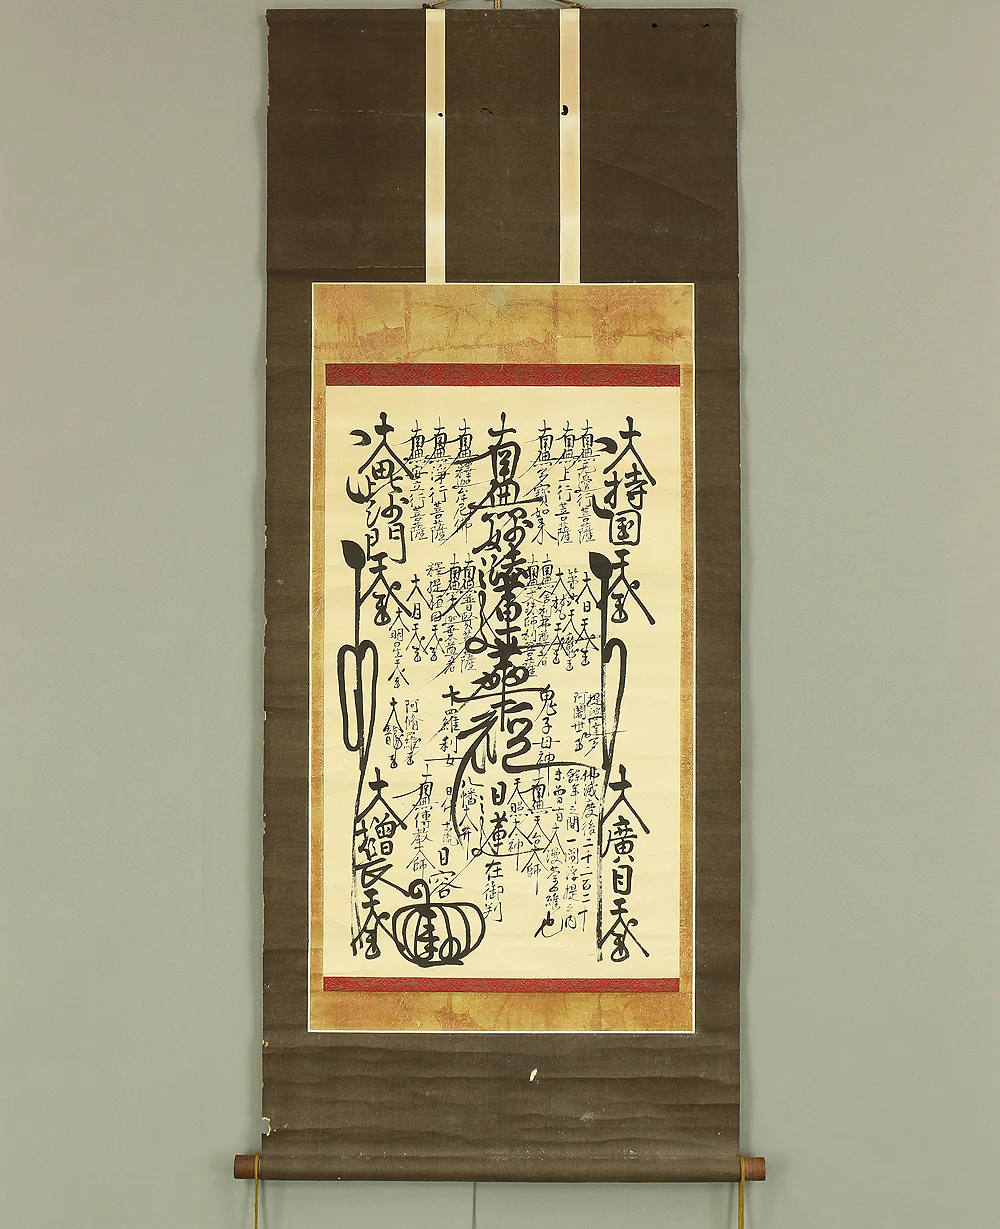 大持国天王
大廣目天王
南無上行菩薩
南無多宝如来
南無妙法蓮華経
日蓮在御判
南無釋迦牟尼佛
南無浄行菩薩
南無安立行菩薩
大毘沙門天王
大増長天王
大日天王
第六天魔王
大梵天王
南無舎利弗尊者
南無文殊師利菩薩
南無普賢菩薩
南無迦葉尊者
釋提桓因天王
大月天王
大明星天王
提婆達多
阿闍世王
鬼子母神
十羅刹女
阿脩羅王
大龍王
佛滅度後二千二百二十
餘年之間一閻浮提之内
未曽有大漫荼羅也
南無天台大師
天照大神
八幡大井
南無傳教大師
日容